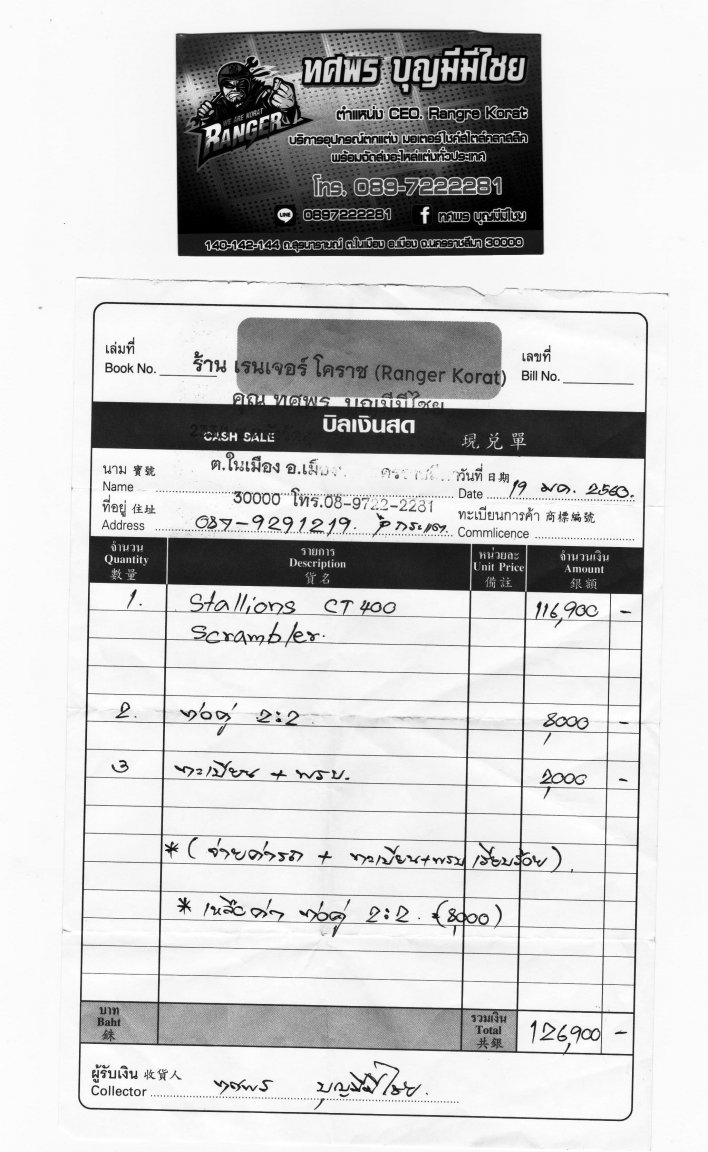 ทศพร บุญมีมีไชย
ตำแหน่ง CEO. Rangre Korat
WE ARE KORAT
RANGER
บริการอุปกรณ์ตกแต่ง มอเตอร์ไซค์สไตล์คลาสสิค
พร้อมจัดส่งอะไหล่แต่งทั่วประเทศ
โทร. 089-7222281
LINE 0897222281 f ทศพร บุญมีมีไชย
140-142-144 ถ.สุรนารายณ์ ต.ในเมือง อ.เมือง จ.นครราชสีมา 30000
เล่มที่
Book No.
ร้าน เรนเจอร์ โคราช (Ranger Korat)
เลขที่
Bill No.
คุณ ทศพร บุญมีมีไชย
CASH SALE บิลเงินสด 現兌單
นาม 寶號
Name
ต.ในเมือง อ.เมือง
วันที่ 日期
Date 19 มค. 2560.
ที่อยู่ 住址
Address
30000 โทร.08-9722-2281
087-9291219.
ทะเบียนการค้า 商標編號
Commlicence
จำนวน Quantity 數量
รายการ Description 貨名
หน่วยละ Unit Price 備註
จำนวนเงิน Amount 銀額
1. Stallions CT 400 116,900 -
Scrambler.
2. ท่อคู่ 2:2 8000 -
3 ทะเบียน + พรบ. 2,000 -
* ( จ่ายค่ารถ + ทะเบียน+พรบ เรียบร้อย ).
* เหลือค่า ท่อคู่ 2:2. (8000)
บาท Baht 銖
รวมเงิน Total 共銀
126,900 -
ผู้รับเงิน 收貨人
Collector ทศพร บุญมีมีไชย.